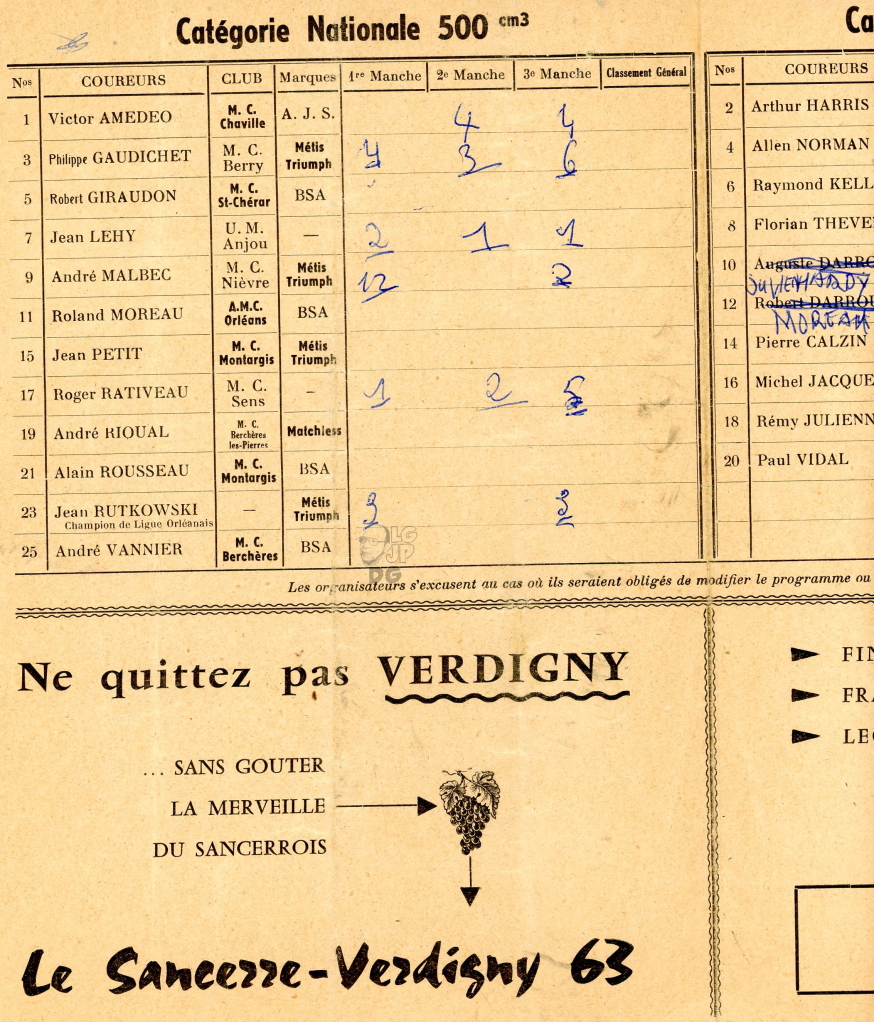 Catégorie Nationale 500 cm3
Nos COUREURS CLUB Marques 1re Manche 2e Manche 3e Manche Classement Général
1 Victor AMEDEO M. C. Chaville A. J. S. 4 4
3 Philippe GAUDICHET M. C. Berry Métis Triumph 4 3 6
5 Robert GIRAUDON M. C. St-Chérar BSA
7 Jean LEHY U. M. Anjou — 2 1 1
9 André MALBEC M. C. Nièvre Métis Triumph 12 2
11 Roland MOREAU A.M.C. Orléans BSA
15 Jean PETIT M. C. Montargis Métis Triumph
17 Roger RATIVEAU M. C. Sens – 1 2 5
19 André RIOUAL M. C. Berchères les-Pierres Matchless
21 Alain ROUSSEAU M. C. Montargis BSA
23 Jean RUTKOWSKI — Métis Triumph 3 3
Champion de Ligue Orléanais
25 André VANNIER M. C. Berchères BSA
LG
JP
DG
Ca
Nos COUREURS
2 Arthur HARRIS
4 Allen NORMAN
6 Raymond KELL
8 Florian THEVE
10 Auguste DARRO
12 Robert DARROU
MOREAU
14 Pierre CALZIN
16 Michel JACQUE
18 Rémy JULIENN
20 Paul VIDAL
Les organisateurs s'excusent au cas où ils seraient obligés de modifier le programme ou
Ne quittez pas VERDIGNY
... SANS GOUTER
LA MERVEILLE
DU SANCERROIS
Le Sancerre-Verdigny 63
FIN
FRA
LEC